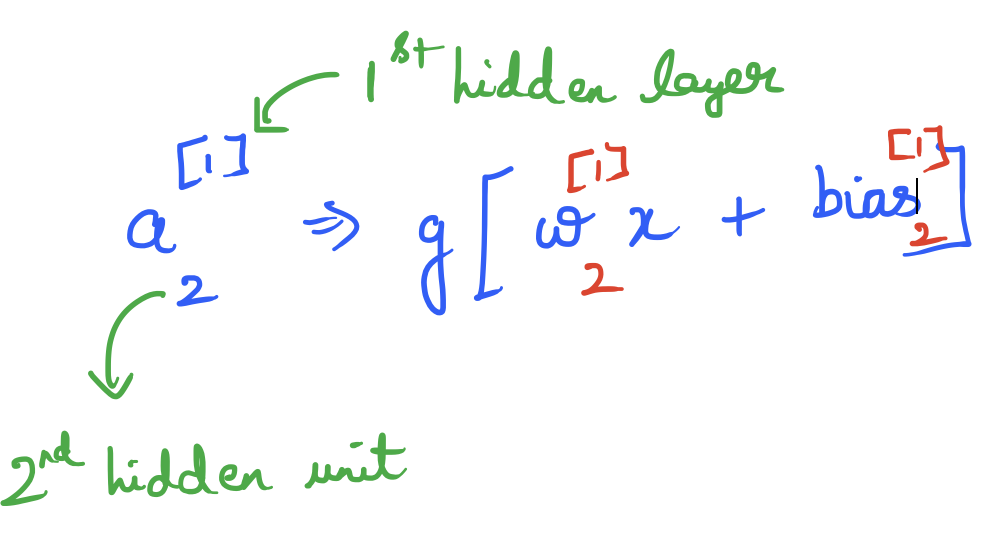 1st hidden layer
a₂[1] ⇒ g[ω₂[1] x + bias₂[1]]
2nd hidden unit